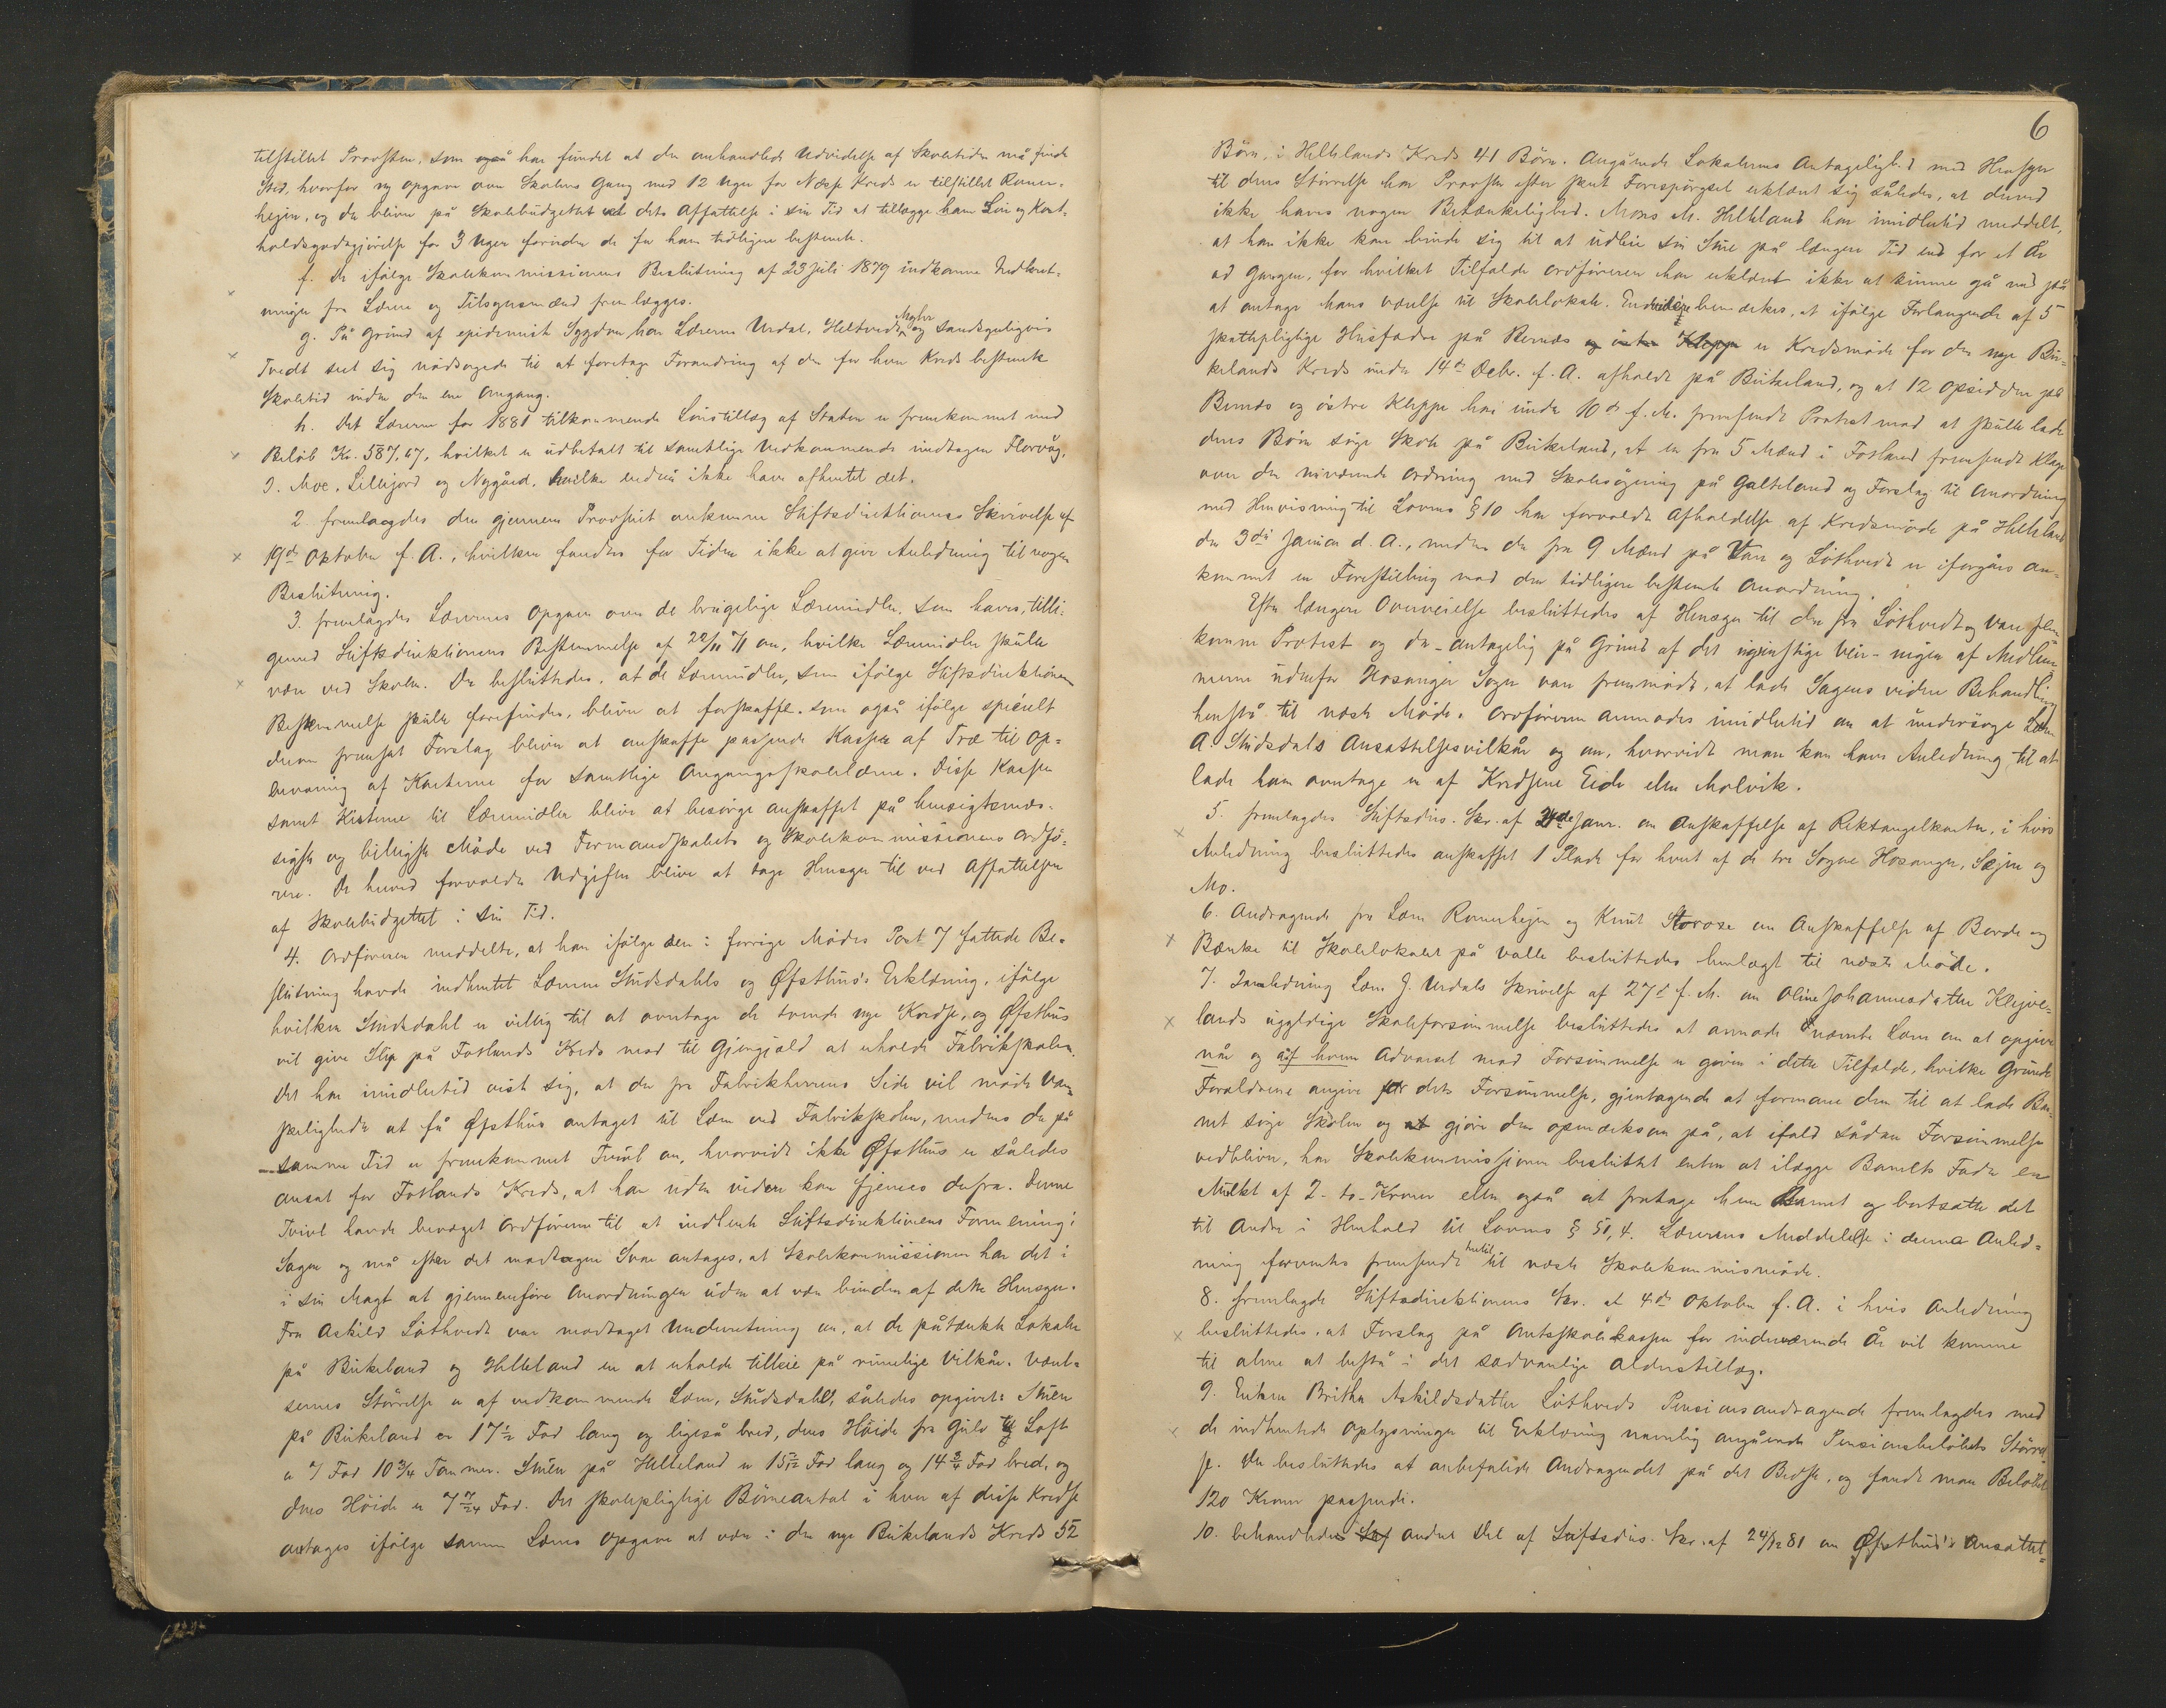 tilstillet Provsten, som også har fundet at den omhandlede Udvidelse af Skoletiden må finde
Sted, hvorfor ny Opgave over Skolens Gang med 12 Uger for Nesse Kreds er tilstillet Romer-
hejm, og der bliver på Skolebudgettet ved dets Affattelse i sin Tid at tillægge ham Løn og Kost-
holdsgodtgjørelse for 3 Uger foruden de for ham tidligere bestemte.
f. De ifølge Skolekommissionens Beslutning af 23 Juli 1879 indkomne Indberet-
ninger fra Lærere og Tilsynsmænd fremlægges.
g. På Grund af epidemisk Sygdom har Lærerne Urdal, Heltvedt, Myhr og sandsynligvis
Tvedt seet sig nødsagede til at foretage Forandring af den for hver Kreds bestemte
Skoletid inden den ene Omgang.
h. Det Lærerne for 1881 tilkommende Lønstillæg af Staten er fremkommet med
Beløb Kr. 587,67, hvilket er udbetalt til samtlige Vedkommende undtagen Florvåg,
J. Moe, Lillejord og Nygård, hvilke endnu ikke have afhentet det.
2. fremlagdes den gjennem Provstiet ankomne Stiftsdirektionens Skrivelse af
19de Oktober f. A., hvilken fandtes for Tiden ikke at give Anledning til nogen
Beslutning.
3. fremlagdes Lærernes Opgave over de brugelige Læremidler, som haves, tilli-
gemed Stiftsdirektionens Bestemmelse af 22/11 71 om, hvilke Læremidler skulle
være ved Skolen. Der besluttedes, at de Læremidler, som ifølge Stiftsdirektionens
Bestemmelse skulle forefindes, bliver at forskaffe, som også ifølge specielt
derom fremsat Forslag bliver at anskaffe passende Kasser af Træ til Op-
bevaring af Karterne for samtlige Omgangsskolelærere. Disse Kasser
samt Kisterne til Læremidler bliver at besørge anskaffet på hensigtsmæs-
sigste og billigste Måde ved Formandskabets og Skolekommissionens Ordfø-
rere. De herved forvoldte Udgifter bliver at tage Hensyn til ved Affattelsen
af Skolebudgettet i sin Tid.
4. Ordføreren meddelte, at han ifølge den i forrige Mødes Post 7 fattede Be-
slutning havde indhentet Lærerne Studsdahls og Øfsthus's Erklæring, ifølge
hvilken Studsdahl er villig til at overtage de tvende nye Kredse, og Øfsthus
vil give Slip på Fotlands Kreds mod til Gjengjæld at erholde Fabrikskolen.
Det har imidlertid vist sig, at der fra Fabrikherrens Side vil møde Van-
skeligheder at få Øfsthus antaget til Lærer ved Fabrikskolen, medens der på
samme Tid er fremkommet Tvivl om, hvorvidt ikke Øfsthus er således
ansat for Fotlands Kreds, at han uden videre kan fjernes derfra. Denne
Tvivl havde bevæget Ordføreren til at indhente Stiftsdirektionens Formening i
Sagen og må efter det modtagne Svar antages, at Skolekommissionen har det i
i sin Magt at gjennemføre Anordningen uden at være bunden af dette Hensyn.
Fra Askild Løthvedt var modtaget Underretning om, at de påtænkte Lokaler
på Birkeland og Helleland er at erholde tilleie på rimelige Vilkår. Værel-
sernes Størrelse er af vedkommende Lærer, Studsdahl, således opgivet: Stuen
på Birkeland er 17½ Fod lang og ligeså bred, dens Høide fra Gulv til Loft
er 7 Fod 10¾ Tommer. Stuen på Helleland er 15 5/12 Fod lang og 14¾ Fod bred, og
dens Høide er 7 7/24 Fod. Det skolepligtige Børneantal i hver af disse Kredse
antages ifølge samme Lærers Opgave at være i den nye Birkelands Kreds 52
6
Børn, i Hellelands Kreds 41 Børn. Angående Lokalernes Antagelighed med Hensyn
til deres Størrelse har Provsten efter skeet Forespørgsel erklæret sig således, at derved
ikke haves nogen Betænkelighed. Mons M. Helleland har imidlertid meddelt,
at han ikke kan binde sig til at udleie sin Stue på længere Tid end for et År
ad Gangen, for hvilket Tilfælde Ordføreren har erklæret ikke at kunne gå ind på
at antage hans Værelse til Skolelokale. Endvidere bemærkes, at ifølge Forlangende af 5
skattepligtige Husfædre på Bernæs og østre Kleppe er Kredsmøde for den nye Bir-
kelands Kreds under 14de Decbr. f. A. afholdt på Birkeland, og at 12 Opsiddere på
Bernæs og østre Kleppe har under 10de f. M. fremsendt Protest mod at skulle lade
deres Børn søge Skole på Birkeland, at en fra 5 Mænd i Fotland fremsendt Klage
over den nuværende Ordning med Skolesøgning på Galteland og Forslag til Anordning
med Henvisning til Lovens § 10 har forvoldt Afholdelse af Kredsmøde på Helleland
den 3die Januar d. A., medens der fra 9 Mænd på Vare og Løthvedt er iforgårs an-
kommet en Forestilling mod den tidligere bestemte Anordning.
Efter længere Overveielse besluttedes af Hensyn til den fra Løthvedt og Vare frem-
komne Protest og da – antagelig på Grund af det ugunstige Veir – ingen af Medlem-
merne udenfor Hosanger Sogn vare fremmødt, at lade Sagens videre Behandling
henstå til næste Møde. Ordføreren anmodes imidlertid om at undersøge Lærer
A. Studsdals Ansættelsesvilkår og om, hvorvidt man kan have Anledning til at
lade ham overtage en af Kredsene Eide eller Molvik.
5. fremlagdes Stiftsdir. Skr. af 24de Janr. om Anskaffelse af Rektangelkarter, i hvis
Anledning besluttedes anskaffet 1 Plade for hvert af de tre Sogne Hosanger, Sæjm og
Mo.
6. Andragende fra Lærer Romerhejm og Knut Storose om Anskaffelse af Borde og
Bænke til Skolelokalet på Valle besluttedes henlagt til næste Møde.
7. I Anledning Lærer J. Urdals Skrivelse af 27de f. M. om Oline Johannesdatter Klejve-
lands ugyldige Skoleforsømmelse besluttedes at anmode nævnte Lærer om at opgive
når og af hvem Advarsel mod Forsømmelse er given i dette Tilfælde, hvilke Grunde
Forældrene angive for dets Forsømmelse, gjentagende at formane dem til at lade Bar-
net søge Skolen og at gjøre dem opmærksom på, at ifald sådan Forsømmelse
vedbliver, har Skolekommissionen besluttet enten at ilægge Barnets Fader en
Mulkt af 2 - to - Kroner eller også at fratage ham Barnet og bortsætte det
til Andre i Henhold til Lovens § 51, 4. Lærerens Meddelelse i denne Anled-
ning forventes fremsendt hertil til næste Skolekommismøde.
8. fremlagdes Stiftsdirektionens Skr. af 4de Oktober f. A. i hvis Anledning
besluttedes, at Forslag på Amtsskolekassen for indeværende År vil komme
til alene at bestå i det sædvanlige Alderstillæg.
9. Enken Britha Askildsdatter Løthvedts Pensionsandragende fremlagdes med
de indhentede Oplysninger til Erklæring navnlig angående Pensionsbeløbets Størrel-
se. Der besluttedes at anbefalede Andragendet på det Bedste, og fandt man Beløbet
120 Kroner passende.
10. behandledes andet Del af Stiftsdir. Skr. af 24/12 81 om Øfsthus's Ansættel-